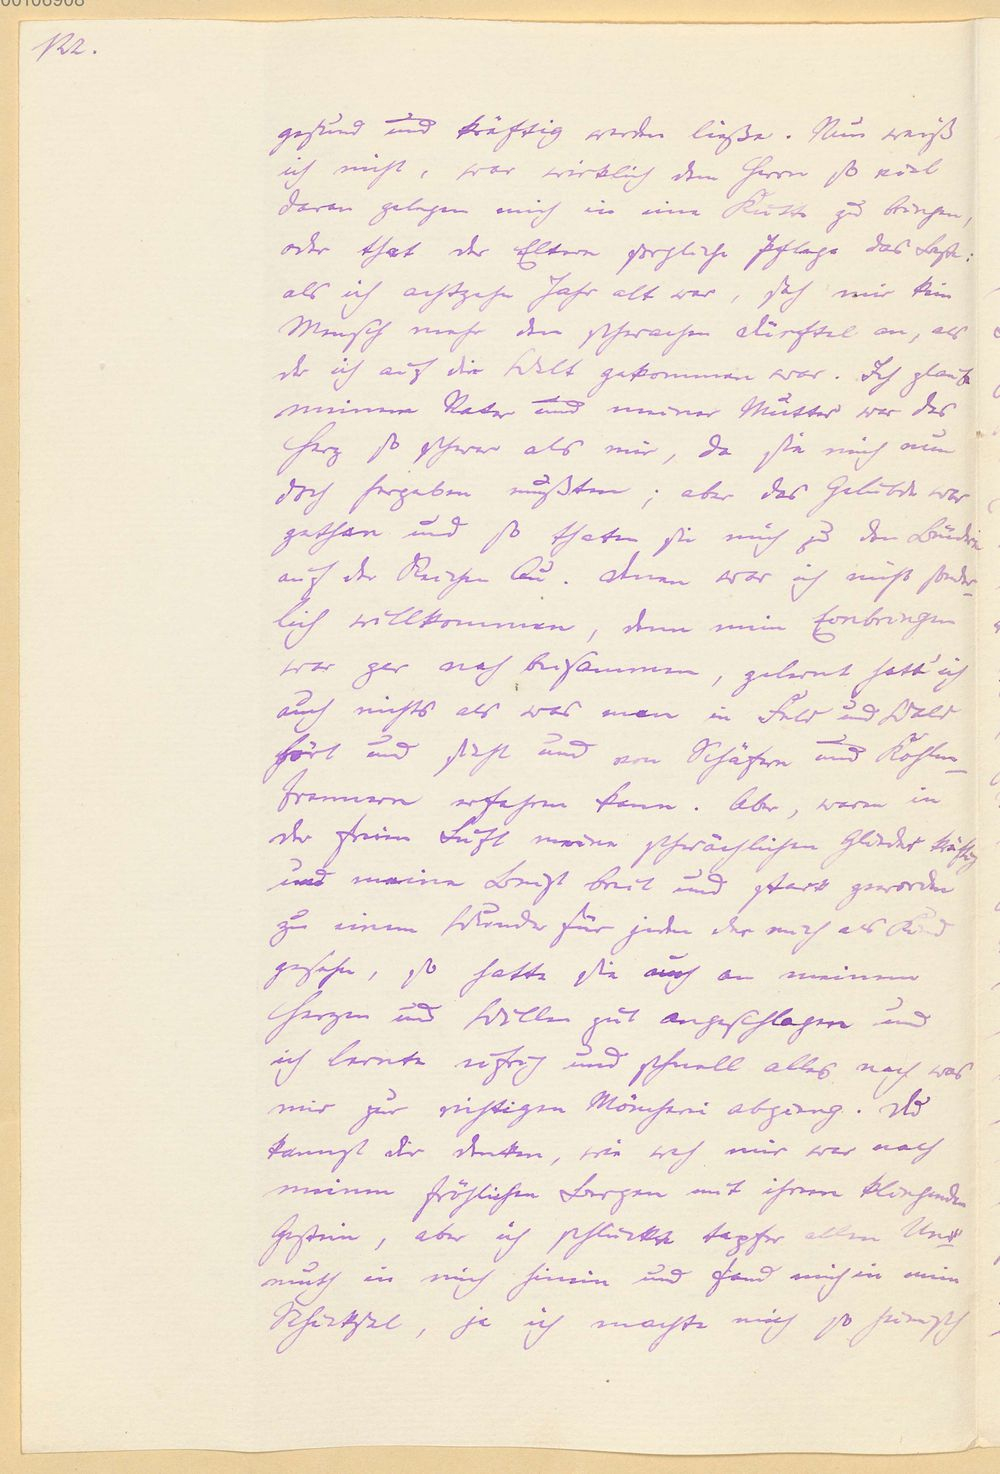 60106908
122.
gesund und kräftig werden ließe. Nun weiß
ich nicht, war wirklich dem Herrn so viel
daran gelegen mich in eine Kutte zu bringen,
oder that der Eltern sorgliche Pflege das Beste:
als ich achtzehn Jahr alt war, sah mir kein
Mensch mehr den schwachen an, als
der ich auf die Welt gekommen war. Ich glaube
meinem Vater und meiner Mutter war das
Herz so schwer als mir, da sie mich nun
doch hergeben mußten; aber das Gelübde war
gethan und so thaten sie mich zu den Brüdern
auf der Reichen Au. Denen war ich nicht sonder-
lich willkommen, denn mein Einbringen
war gar nach beisammen, gelernt hatt' ich
auch nichts als was man in Feld und Wald
hört und sieht und von Schäfern und Kohlen-
brennern erfahren kann. Aber, waren in
der freien Luft meine schwächlichen Glieder kräftig
und meine Brust breit und stark geworden
zu einem Wunder für jeden der mich als Kind
gesehn, so hatte sie auch an meinem
Herzen und Willen gut angeschlagen und
ich lernte eifrig und schnell alles nach was
mir zur richtigen Möncherei abgieng. Du
kannst dir denken, wie weh mir war nach
meinen fröhlichen Bergen mit ihrem klingenden
Gestein, aber ich schluckte tapfer allen Un-
muth in mich hinein und fand mich in mein
Schicksal, ja ich machte mich so heimisch